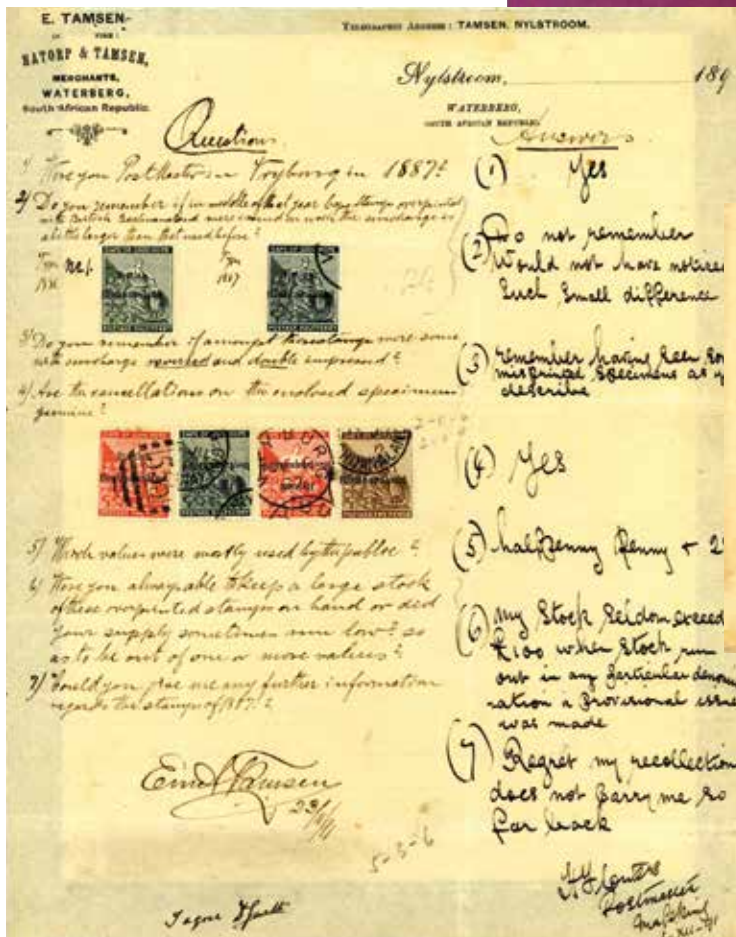 E. TAMSEN
IN FIRM:
NATORP & TAMSEN,
MERCHANTS,
WATERBERG,
South African Republic.
TELEGRAPHIC ADDRESS: TAMSEN, NYLSTROOM.
Nylstroom, 189
WATERBERG,
SOUTH AFRICAN REPUBLIC.
Questions
1) Were you Postmaster in Vryburg in 1887?
2) Do you remember if in middle of that year stamps overprinted
with British Bechuanaland were issued on which the surcharge is
a little larger than that used before?
Type
Type
1887
3) Do you remember if amongst these stamps were some
with surcharge reversed and double impressed?
4) Are the cancellations on the enclosed specimens
genuine?
5) Which values were mostly used by the public?
6) Were you always able to keep a large stock
of these overprinted stamps on hand or did
your supply sometimes run low? so
as to be out of one or more values?
7) Could you give me any further information
regards the stamps of 1887?
Emil Tamsen
5-3-6
Answers
(1) Yes
(2) Do not remember
Would not have noticed
Such Small difference
(3) remember having seen
misprinted Specimens as
describe
(4) Yes
(5) halfpenny Penny + 2
(6) my Stock Seldom exceed
£100 when Stock run
out in any particular denomi
nation a Provisional issue
was made
(7) Regret my recollection
does not carry me so
far back
Postmaster
Mafeking